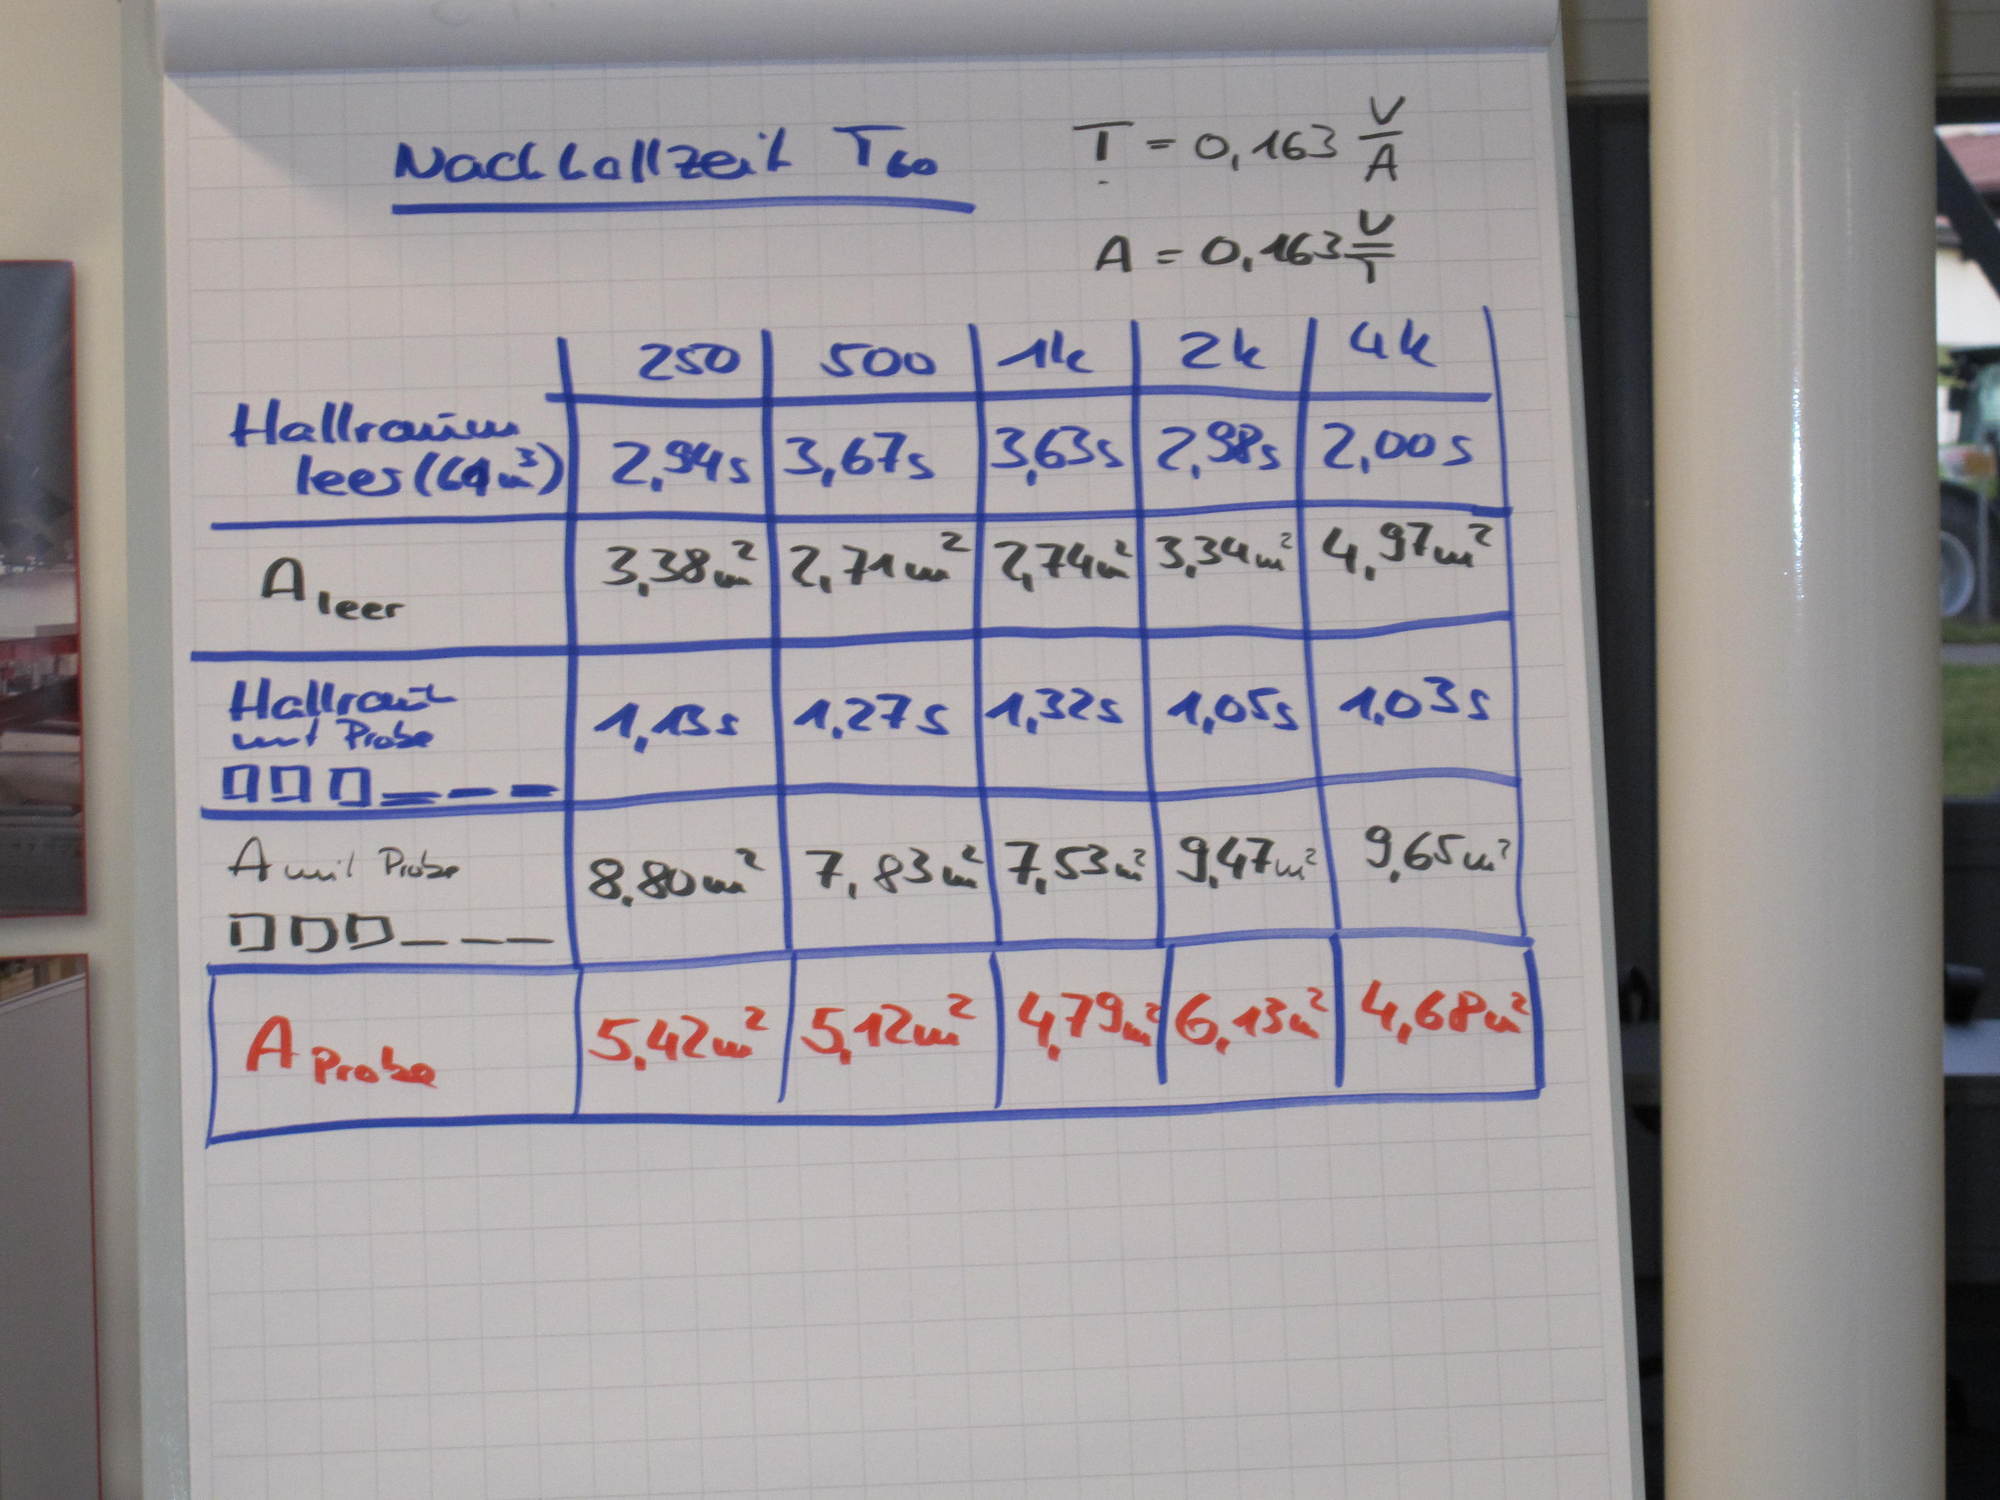 Nachhallzeit T60
T = 0,163 V/A
A = 0,163 V/T
250 500 1k 2k 4k
Hallraum
leer (61m³) 2,94s 3,67s 3,63s 2,98s 2,00s
A leer 3,38m² 2,71m² 2,74m² 3,34m² 4,97m²
Hallraum
mit Probe 1,13s 1,27s 1,32s 1,05s 1,03s
A mit Probe 8,80m² 7,83m² 7,53m² 9,47m² 9,65m²
A Probe 5,42m² 5,12m² 4,79m² 6,13m² 4,68m²